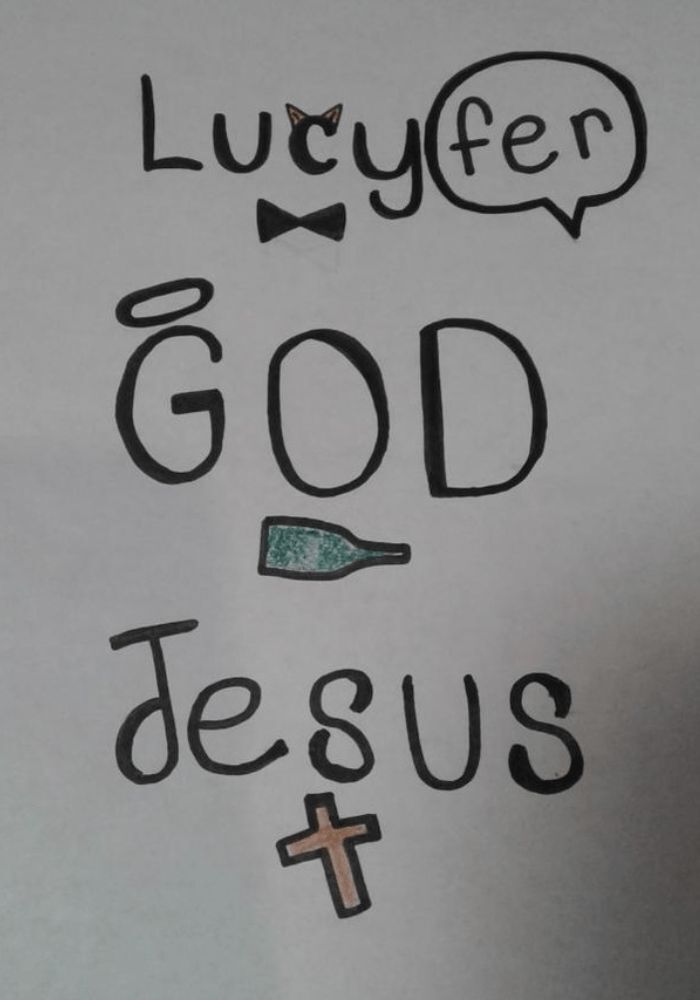 Lucyfer
GOD
Jesus